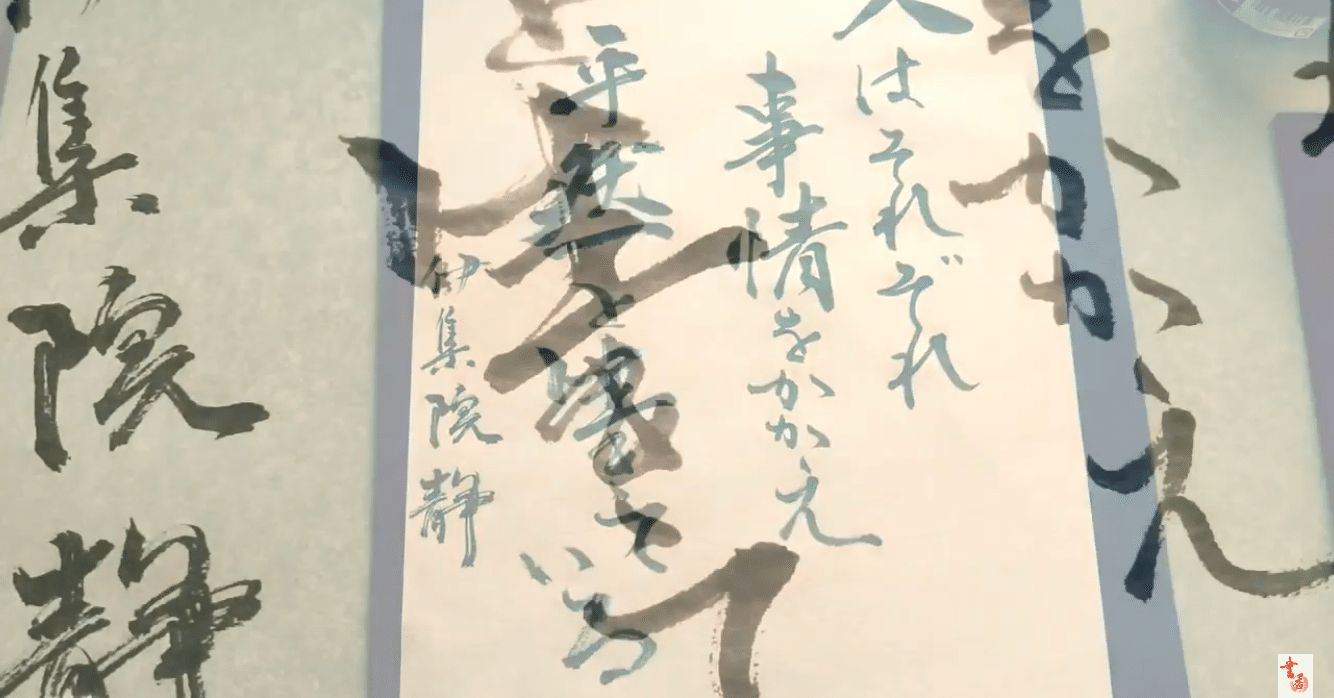 をかかえ
人はそれぞれ
事情をかかえ
平然と生きている
伊集院静
集院静